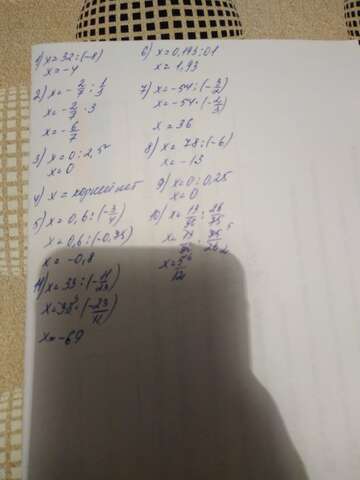 1) x=32:(-8)
x=-4
2) x=-2/7:1/3
x=-2/7·3
x=-6/7
3) x=0:2,5
x=0
4) x= корней нет
5) x=0,6:(-3/4)
x=0,6:(-0,75)
x=-0,8
11) x=33:(-11/23)
x=33·(-23/11)
x=-69
6) x=0,193:0,1
x=1,93
7) x=-54:(-3/2)
x=-54·(-2/3)
x=36
8) x=78:(-6)
x=-13
9) x=0:0,25
x=0
10) x=
x=
x=5/12